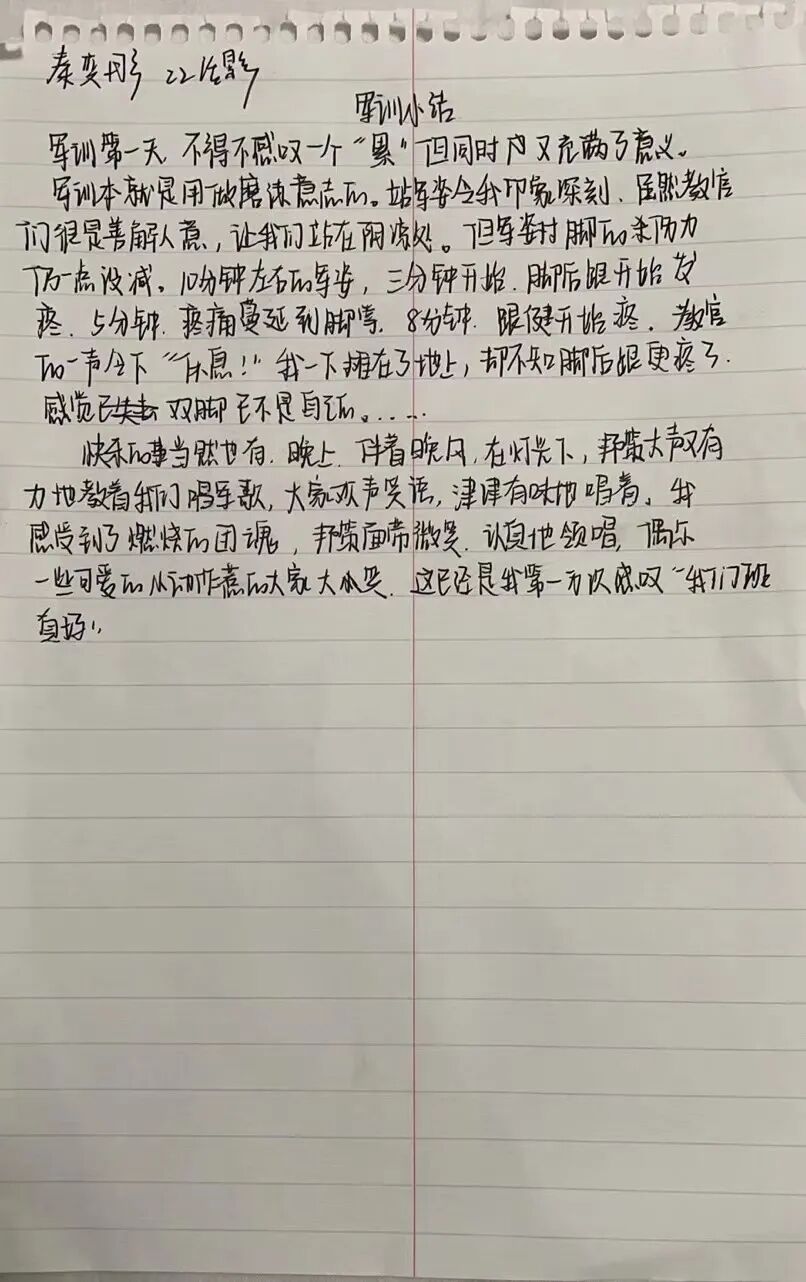 秦奕彤 22绘影
军训小结
军训第一天 不得不感叹一个“累”但同时内又充满了意义。
军训本就是用做磨练意志的。站军姿令我印象深刻、虽然教官
们很是善解人意，让我们站在阴凉处。但军姿对脚的杀伤力
仍一点没减。10分钟左右的军姿，三分钟开始.脚后跟开始发
疼.5分钟.疼痛蔓延到脚掌.8分钟.跟健开始疼.教官
的一声令下“休息!”我一下摊在了地上，却不知脚后跟更疼了.
感觉已 双脚已不是自己的。.....
快乐的事当然也有.晚上.伴着晚风,在灯光下，邦策大声又有
力地教着我们唱军歌，大家欢声笑语，津津有味地唱着。我
感受到了燃烧的团魂，邦策面带微笑.认真地领唱,偶尔
一些可爱的小动作惹的大家大小笑.这已还是我第一万次感叹“我们班
真好”